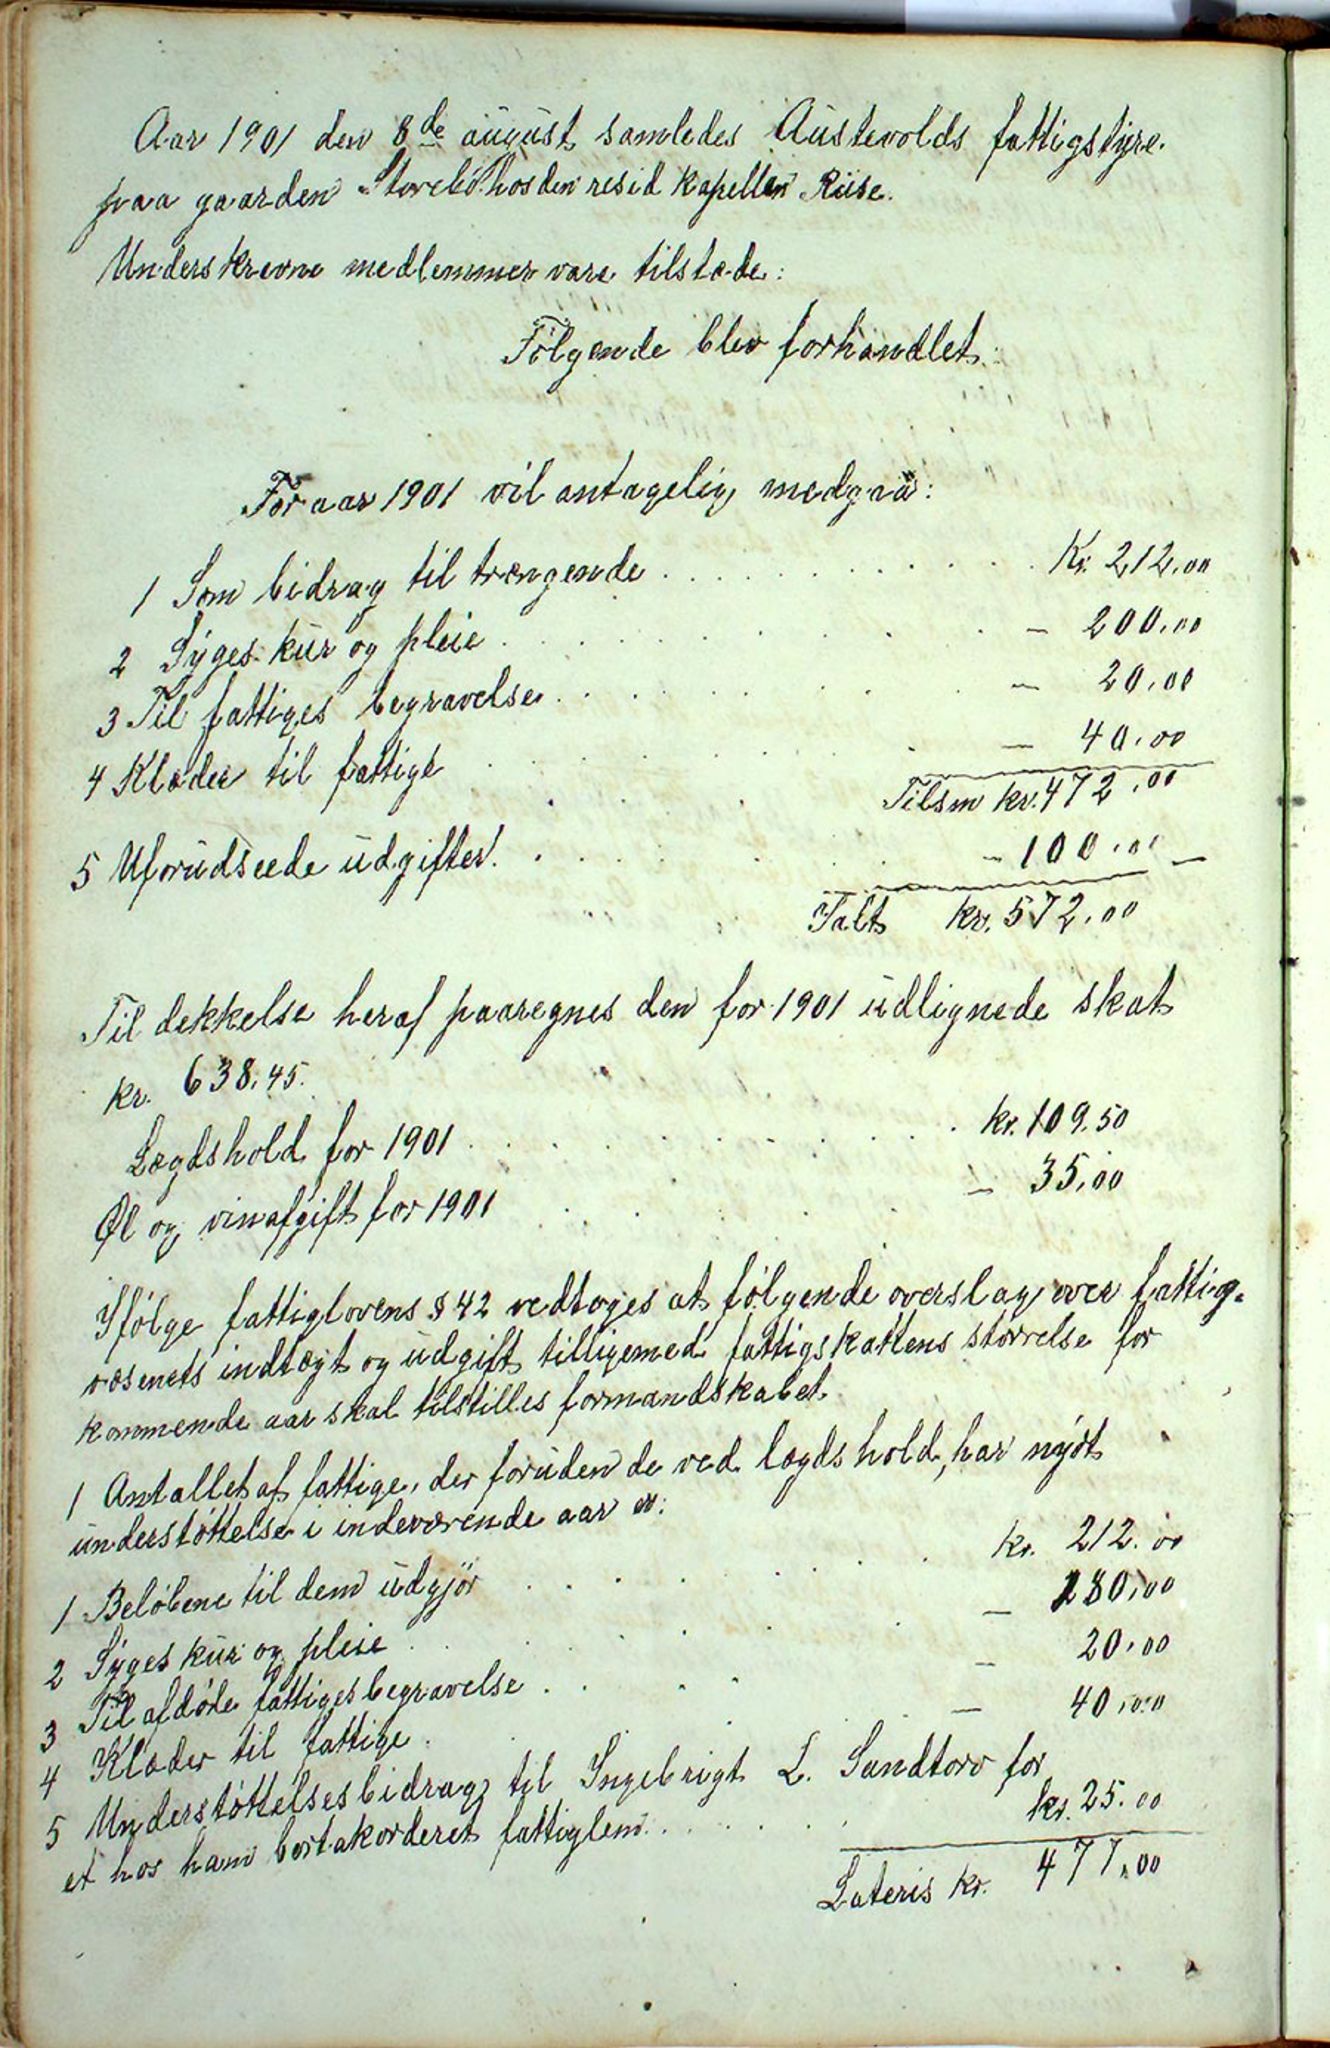 Aar 1901 den 8de august samledes Austevolds fattigstyre.
paa gaarden Storebö hos den resid kapellan Riise.
Underskrevne medlemmer vare tilstede:
Fölgende blev forhandlet:
For aar 1901 vil antagelig medgaa:
1 Som bidrag til trængende . . . . . . . . . . Kr. 212,00
2 Syges kur og pleie . . . . . . . . . . – 200,00
3 Til fattiges begravelse . . . . . . . . . – 20,00
4 Klæder til fattige . . . . . . . – 40,00
Tilsm kr. 472,00
5 Uforudseede udgifter . . . . . . . – 100,00 –
Ialt kr. 572,00
Til dekkelse heraf paaregnes den for 1901 udlignede skat
kr. 638,45.
Lægdshold for 1901 . . . . . . . . . . kr. 109,50
Øl og vinafgift for 1901 . . . . . . – 35,00
Ifölge fattiglovens § 42 vedtoges at fölgende overslag over fattig-
væsenets indtægt og udgift tilligemed fattigskattens störrelse for
kommende aar skal tilstilles formandskabet.
1 Antallet af fattige, der foruden de ved lægdshold, har nydt
understöttelse i indeværende aar er:
1 Belöbene til dem udgjör . . . . . . . kr. 212.00
2 Syges kur og pleie . . . . . . . – 180,00
3 Til afdöde fattiges begravelse . . . . – 20,00
4 Klæder til fattige . – 40,00
5 Understöttelsesbidrag til Ingebrigt L. Sandtorv for
et hos ham bortakorderet fattiglem . . . . . . kr. 25.00
Lateris kr. 477,00